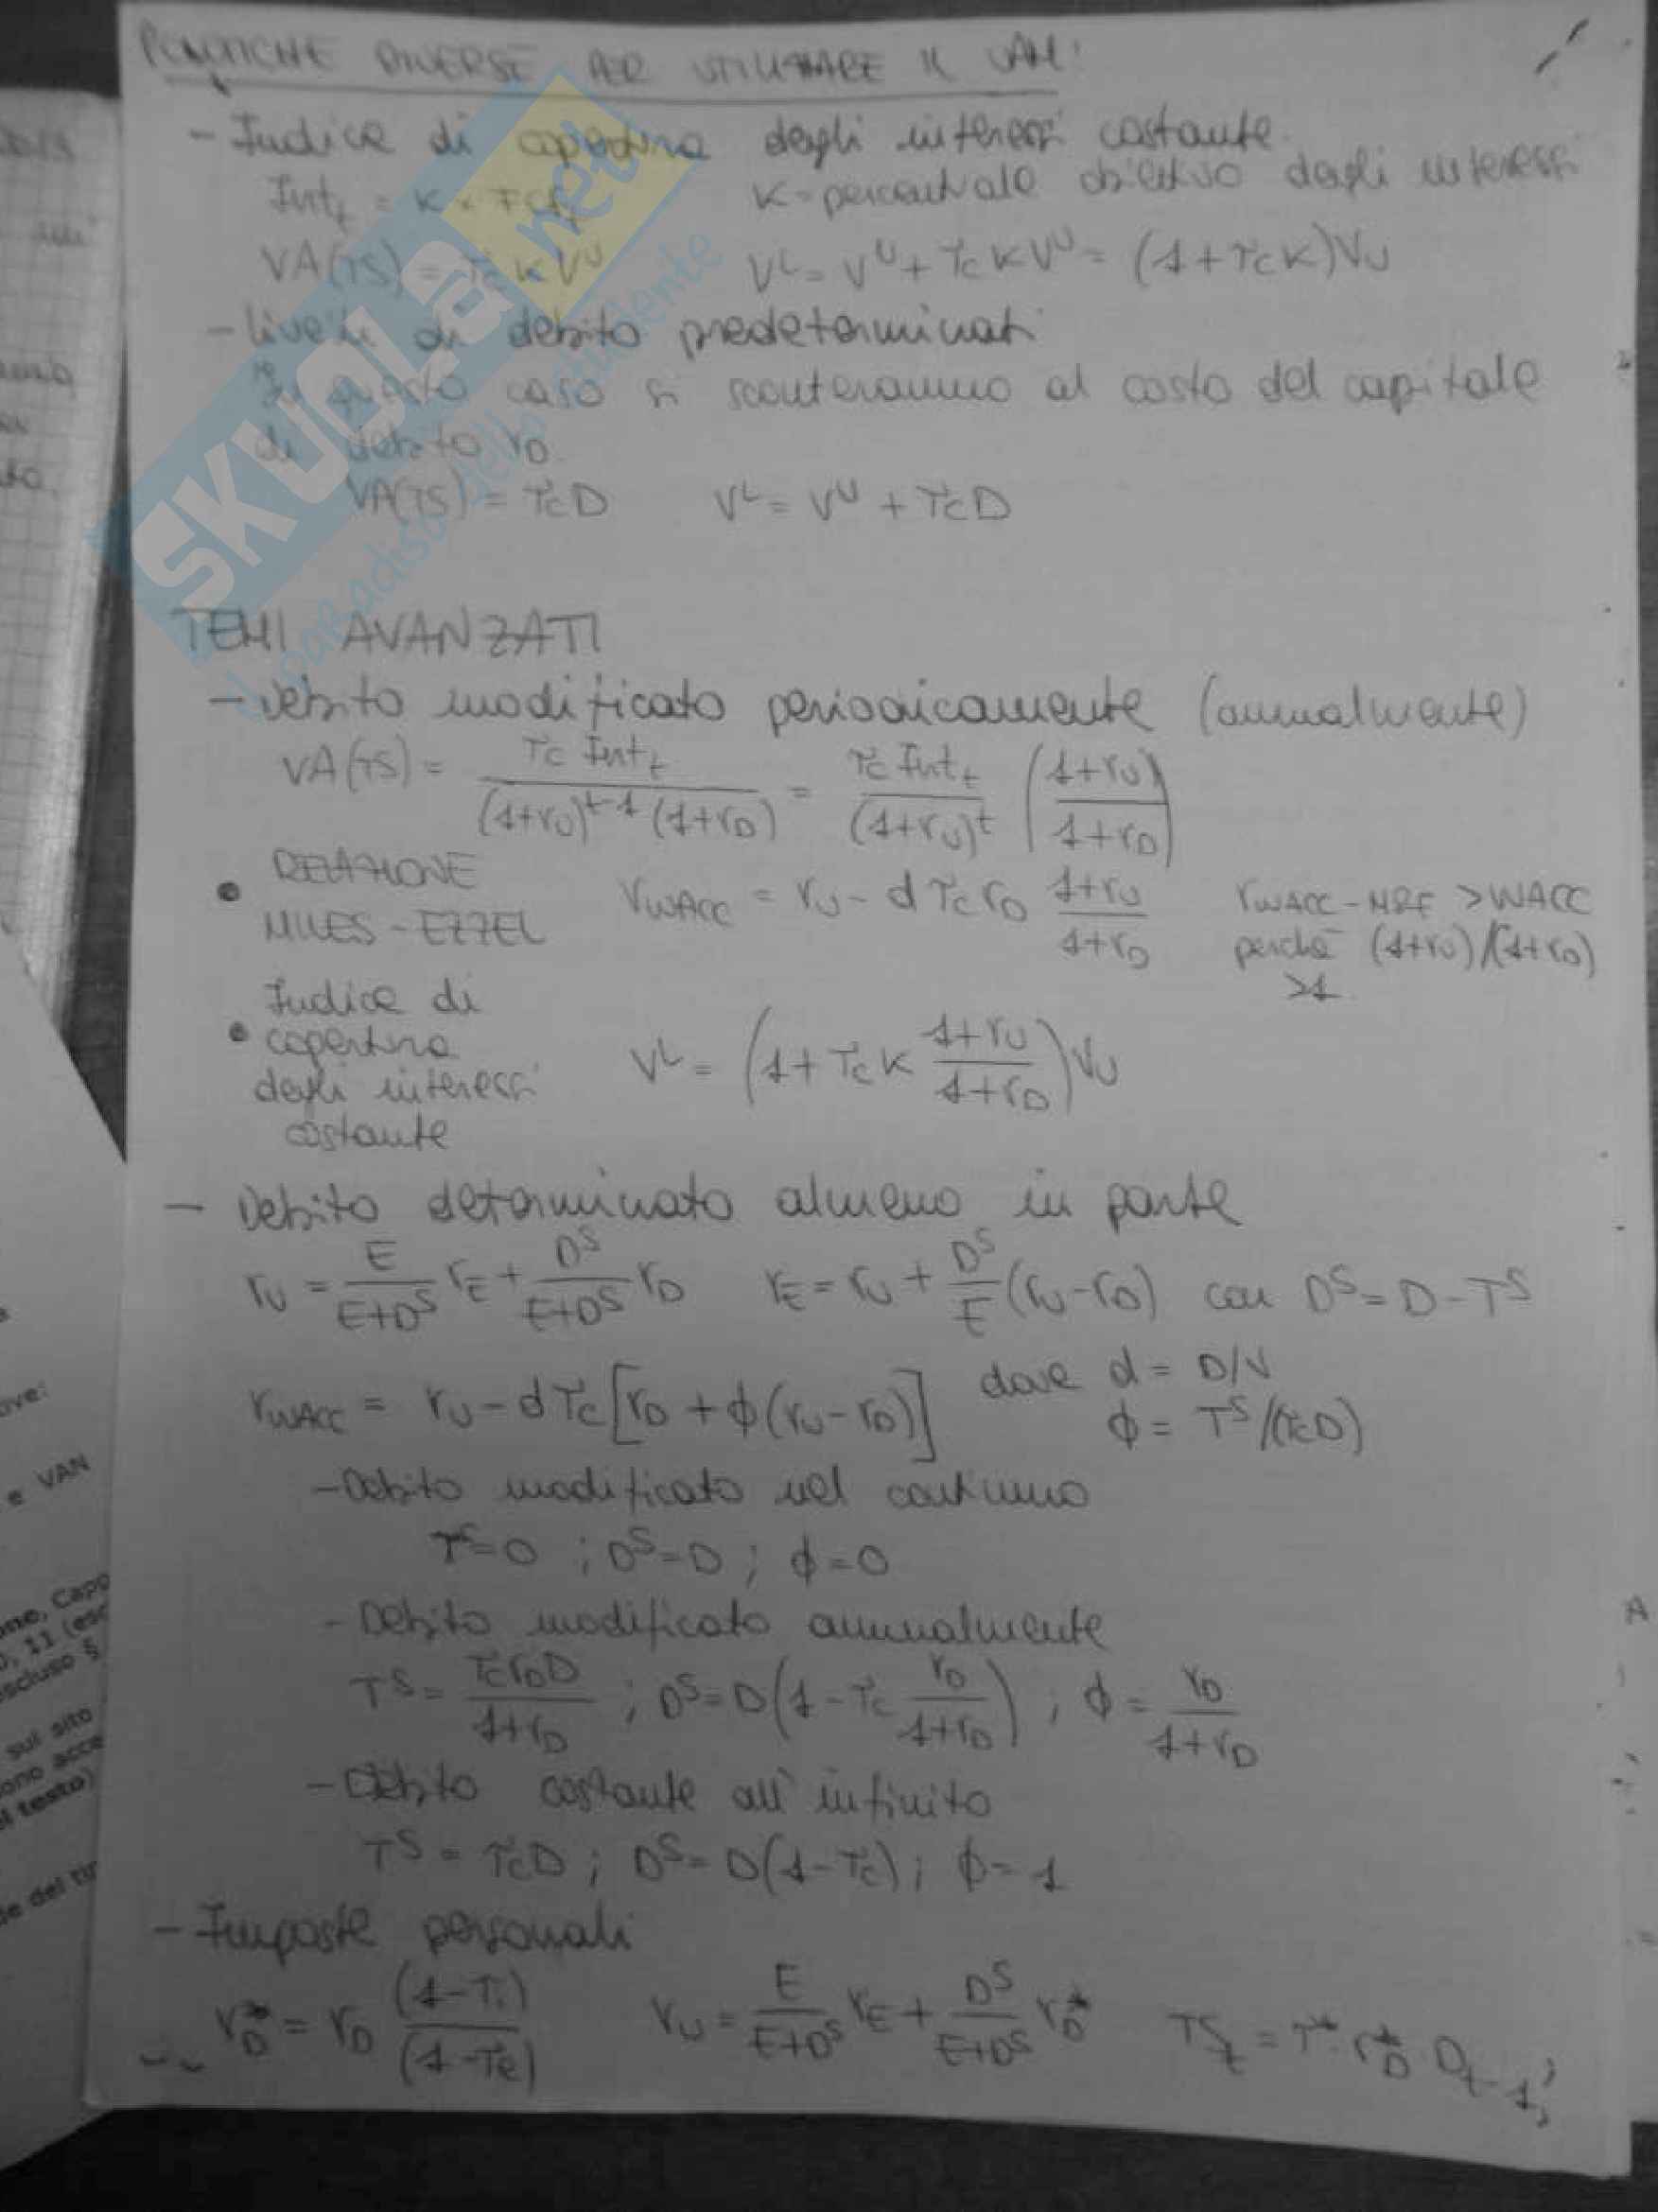 POLITICHE DIVERSE PER UTILIZZARE IL VAM:
- Indice di copertura degli interessi costante
Int_t = K × FCF_t K = percentuale obiettivo degli interessi
VA(TS) = τc K V^U V^L = V^U + τc K V^U = (1+τc K)V^U
- livelli di debito predeterminati
In questo caso si sconteranno al costo del capitale
di debito r_D
VA(TS) = τc D V^L = V^U + τc D
TEMI AVANZATI
- Debito modificato periodicamente (annualmente)
VA(TS) = τc Int_t / ((1+r_U)^(t-1) (1+r_D)) = τc Int_t / (1+r_U)^t ((1+r_U)/(1+r_D))
• RELAZIONE MILES-EZZEL r_WACC = r_U - d τc r_D (1+r_U)/(1+r_D) r_WACC-M&E > WACC
perché (1+r_U)/(1+r_D)
>1
• Indice di copertura degli interessi costante V^L = (1 + τc K (1+r_U)/(1+r_D)) V_U
- Debito determinato almeno in parte
r_U = E/(E+D^S) r_E + D^S/(E+D^S) r_D r_E = r_U + D^S/E (r_U - r_D) con D^S = D - T^S
r_WACC = r_U - d τc [r_D + φ(r_U - r_D)] dove d = D/V
φ = T^S/(τc D)
- Debito modificato nel continuo
T^S = 0 ; D^S = D ; φ = 0
- Debito modificato annualmente
T^S = τc r_D D / (1+r_D) ; D^S = D(1 - τc r_D/(1+r_D)) ; φ = r_D/(1+r_D)
- Debito costante all'infinito
T^S = τc D ; D^S = D(1-τc) ; φ = 1
- Imposte personali
r_D* = r_D (1-τi)/(1-τe) r_U = E/(E+D^S) r_E + D^S/(E+D^S) r_D* TS_t = τ* · r_D* D_t-1 ;
SKUOLA.net
il paradiso dello studente
ove:
e VAN
one, Capp
, 11 (esc
escluso §
sul sito
ono acce
l testo)